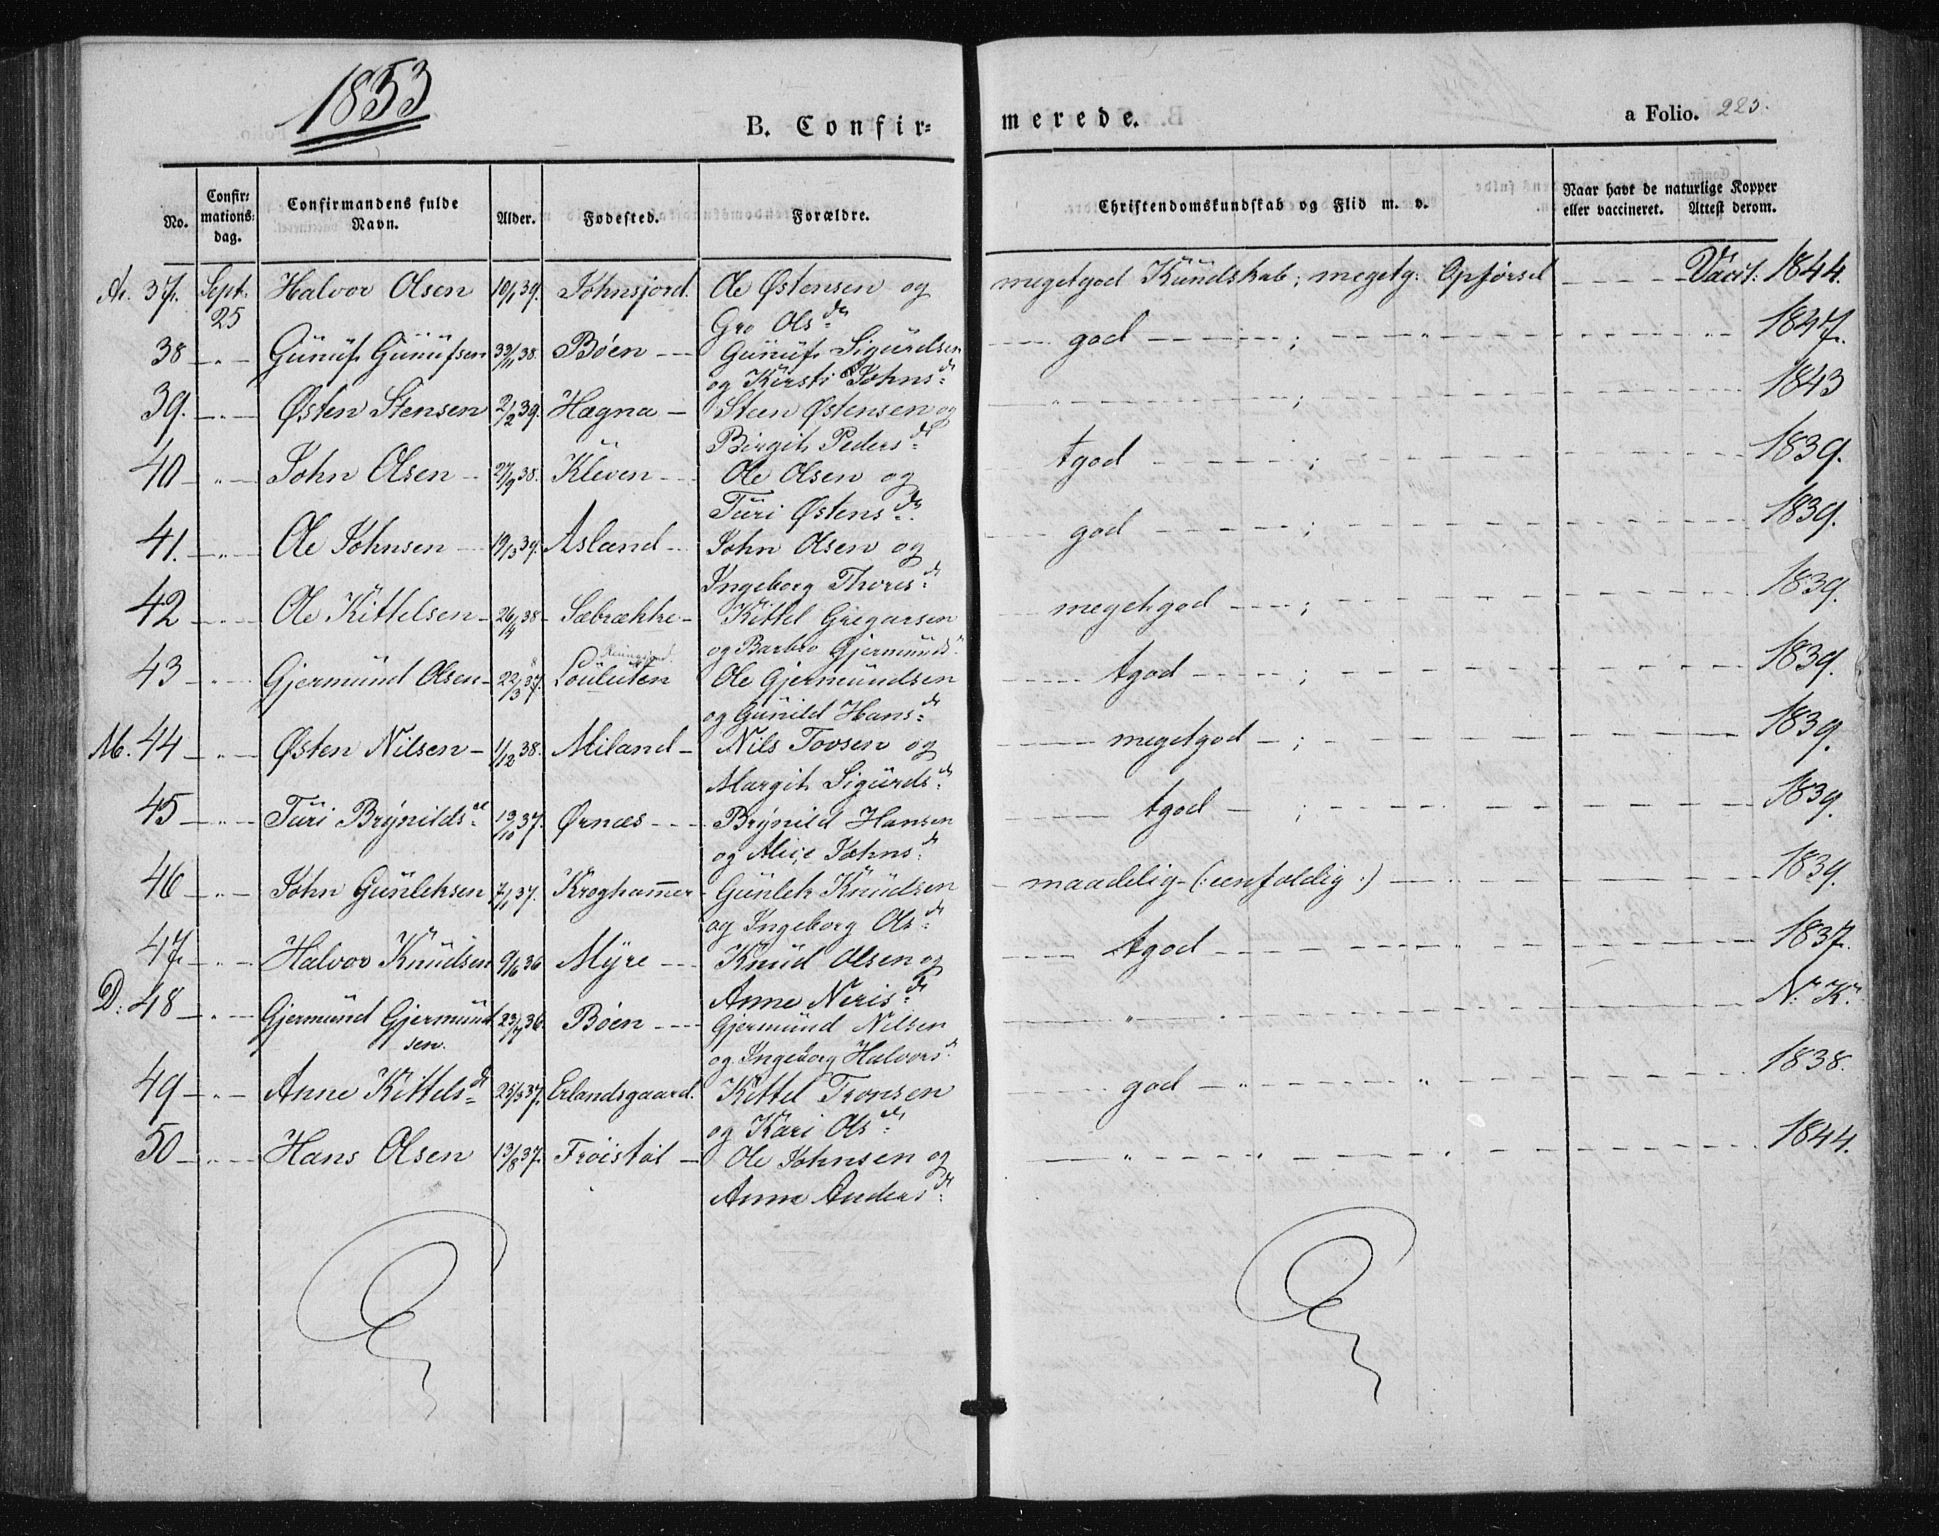 1853
B. Confir= merede. a Folio. 225.
No. Confir=mations=dag. Confirmandens fulde Navn. Alder. Fødested. Forældre. Christendomskundskab og Flid m. v. Naar havt de naturlige Kopper eller vaccineret. Attest derom.
A. 37. Sept. 25 Halvor Olsen 10/1 39. Johnsjord. Ole Østensen og megetgod Kundskab; megetg: Opførsel Vacit: 1844.
Gro Olsdr.
38 " Gunuf Gunufsen /11 38. Bøen Gunuf Sigurdsen god ; " " 1847.
og Kirsti Johnsd:
39. " Østen Stensen 2/2 39. Hagna Steen Østensen og " ; 1843
Birgit Pedersd:
40 " John Olsen 27/9 38. Kleven Ole Olsen og tgod ; 1839.
Turi Østensdr.
41. " Ole Johnsen 19/3 39. Asland John Olsen og god ; 1839.
Ingeborg Thoresd:
42 " Ole Kittelsen 26/4 38 Sæbrække Kittel Gregarsen megetgod ; 1839.
og Barbro Gjermundsd:
43 " Gjermund Olsen 22/3 37. Louluten Ole Gjermundsen tgod ; 1839.
og Gunild Hansd:
M. 44 " Østen Nilsen 1/12 38. Miland Nils Tovsen og megetgod ; 1839.
Margit Sigurdsd:
45 " Turi Brynildsd: 13/10 37. Ørnæs Brynild Hansen tgod ; 1839.
og Alice Johnsd:
46 " John Gunleksen 7/1 37. Kroghamer Gunlek Knudsen maadelig (: eenfoldig :) 1839.
og Ingeborg Olsd:
47. " Halvor Knudsen 9/6 36 Myre Knud Olsen og tgod " 1837.
Anne Nerisd:
D. 48 " Gjermund Gjermundsen. 23/7 36 Bøen Gjermund Nilsen " N: K:
og Ingeborg Halvorsd:
49 " Anne Kittelsd: 25/5 37. Erlandsgaard. Kittel Tronsen god " " 1838.
og Kari Olsd:
50 " Hans Olsen 13/8 37. Frøistøl Ole Johnsen og " " " 1844.
Anne Andersd: